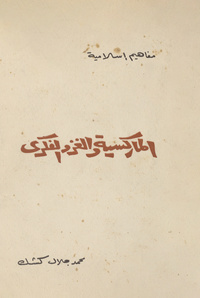 مفاهيم اسلامية
الماركسية والغزو الفكرى
محمد جلال كشك